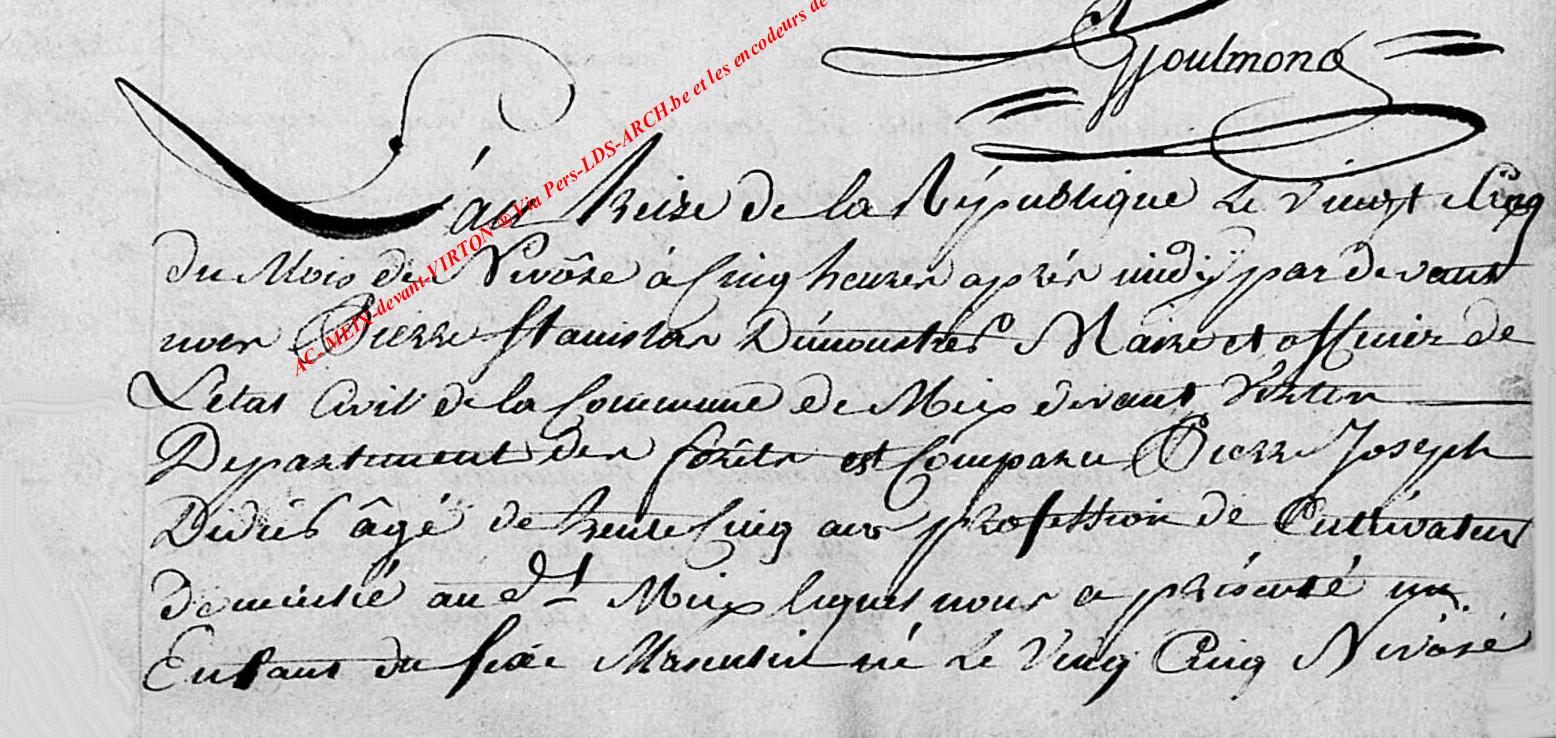 Goulmond
AC-MEIX-devant-VIRTON ® Via Pers-LDS-ARCH.be et les encodeurs de
L'an treize de la République Le vingt Cinq
du Mois de Nivôse à Cinq heures après midy par devant
nous Pierre Stanislas Maire et officier de
L'etat Civil de la Commune de Meix devant Virton
Departement des forêts est Comparu Pierre Joseph
Didier âgé de trente Cinq ans profession de Cultivateur
domicilié au dt Meix lequel nous a présenté un
Enfant du sexe Masculin né Le Vingt Cinq Nivose